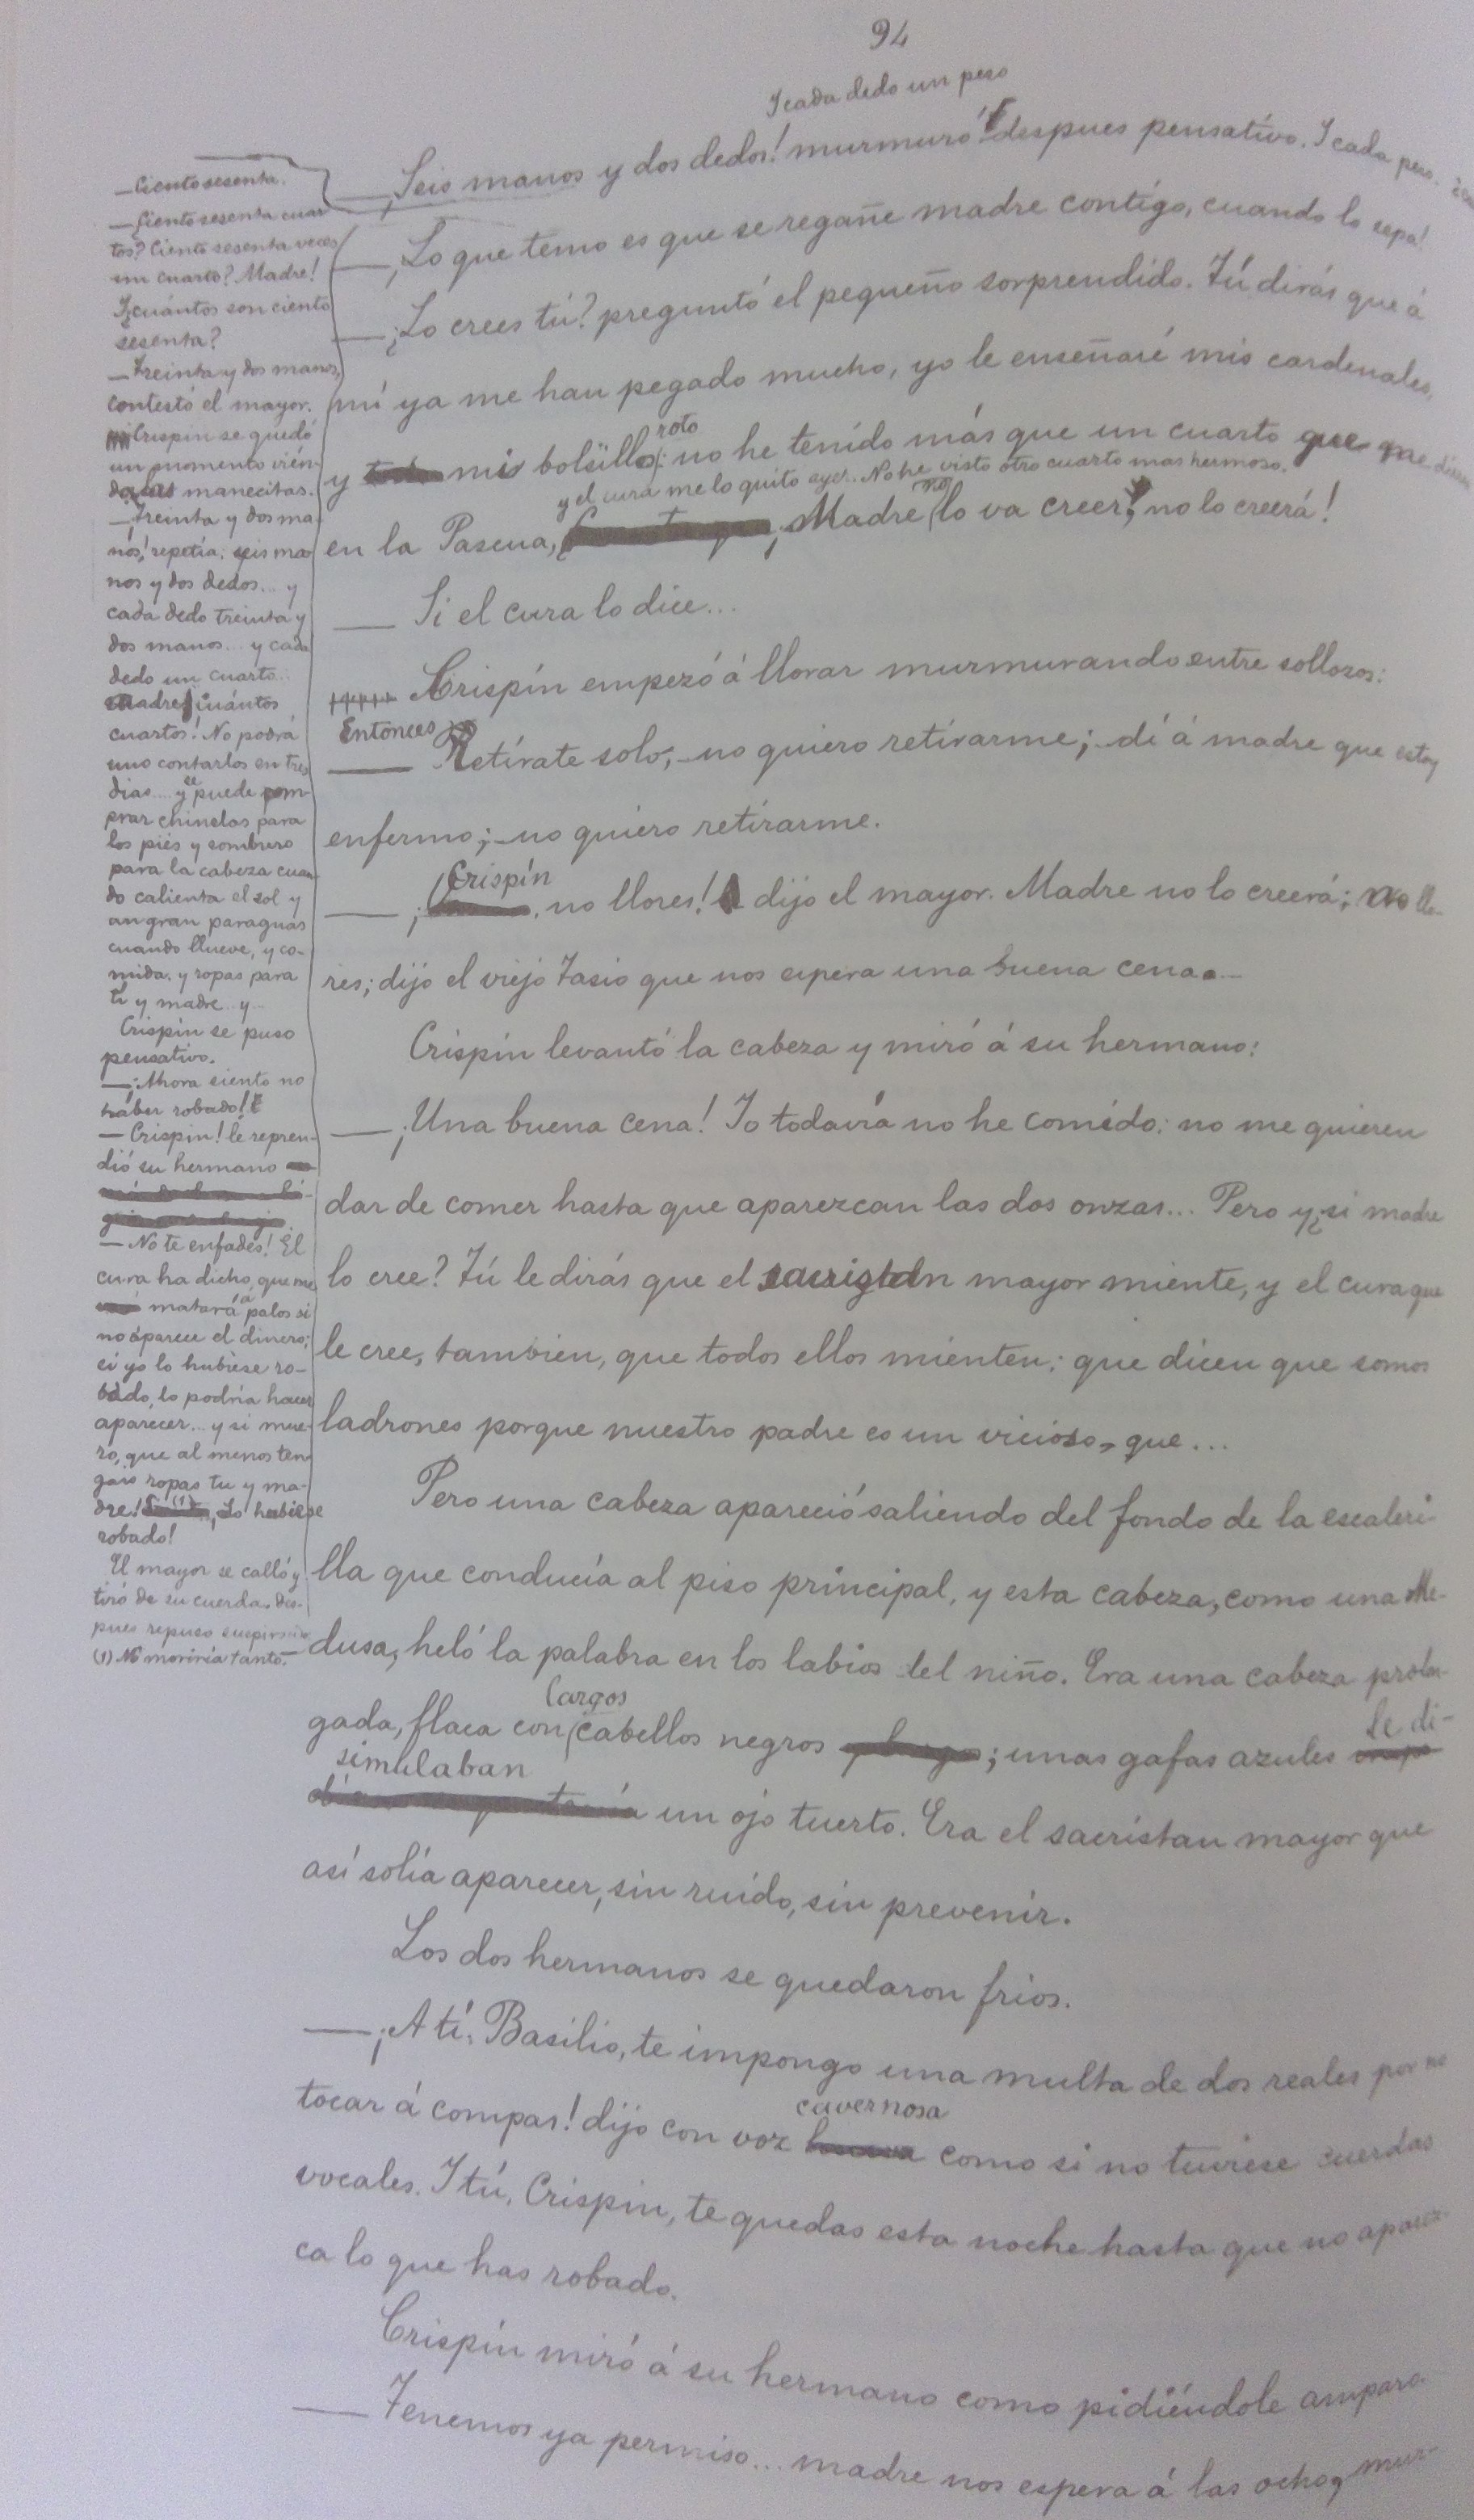 94
Y cada dedo un peso
— Seis manos y dos dedos! murmuró despues pensativo. Y cada peso.
— ¡Lo que temo es que se regañe madre contigo, cuando lo sepa!
— ¿Lo crees tú? preguntó el pequeño sorprendido. Tú dirás que á
mí ya me han pegado mucho, yo le enseñaré mis cardenales,
y mi bolsillo roto: no he tenido más que un cuarto que me dieron
y el cura me lo quitó ayer. No he visto otro cuarto mas hermoso.
en la Pascua, ¡Madre no lo va creer! no lo creerá!
— Si el cura lo dice...
Crispín empezó á llorar murmurando entre sollozos:
Entonces
— Retírate solo; no quiero retirarme; dí á madre que estoy
enfermo; no quiero retirarme.
— ¡Crispín, no llores! dijo el mayor. Madre no lo creerá; no llo-
res; dijo el viejo Tasio que nos espera una buena cena...
Crispín levantó la cabeza y miró á su hermano:
— ¡Una buena cena! Yo todavía no he comido: no me quieren
dar de comer hasta que aparezcan las dos onzas... Pero y ¿si madre
lo cree? Tú le dirás que el sacristan mayor miente, y el cura que
le cree, tambien, que todos ellos mienten; que dicen que somos
ladrones porque nuestro padre es un vicioso, que...
Pero una cabeza apareció saliendo del fondo de la escaleri-
lla que conducía al piso principal, y esta cabeza, como una Me-
dusa, heló la palabra en los labios del niño. Era una cabeza prolon-
gada, flaca con largos cabellos negros; unas gafas azules le di-
simulaban un ojo tuerto. Era el sacristan mayor que
así solía aparecer, sin ruido, sin prevenir.
Los dos hermanos se quedaron frios.
— ¡A tí, Basilio, te impongo una multa de dos reales por no
tocar á compas! dijo con voz cavernosa como si no tuviese cuerdas
vocales. Y tú, Crispin, te quedas esta noche hasta que no aparez-
ca lo que has robado.
Crispín miró á su hermano como pidiéndole amparo.
— Tenemos ya permiso... madre nos espera á las ocho, mur-
— Ciento sesenta.
— ¿Ciento sesenta cuar
tos? Ciento sesenta veces
un cuarto? Madre!
Y ¿cuántos son ciento
sesenta?
— Treinta y dos manos,
contestó el mayor.
Crispin se quedó
un momento vién-
dose manecitas.
— ¡Treinta y dos ma-
nos! repetía: seis ma
nos y dos dedos... y
cada dedo treinta y
dos manos... y cada
dedo un cuarto...
Madre ¡cuántos
cuartos! No podrá
uno contarlos en tres
dias... y se puede com-
prar chinelas para
los piés y sombrero
para la cabeza cuan-
do calienta el sol y
un gran paraguas
cuando llueve, y co-
mida, y ropas para
tí y madre y...
Crispín se puso
pensativo.
— ¡Ahora siento no
háber robado!
— Crispin! le repren-
dió su hermano
— No te enfades! El
cura ha dicho que me
matará á palos si
no aparece el dinero;
si yo lo hubiese ro-
bado, lo podría hacer
aparecer... y si mue-
ro, que al menos ten
gais ropas tu y ma-
dre! (1) Lo hubiese
robado!
El mayor se calló y
tiró de su cuerda. Des-
pues repuso suspirando
(1) No moriría tanto.